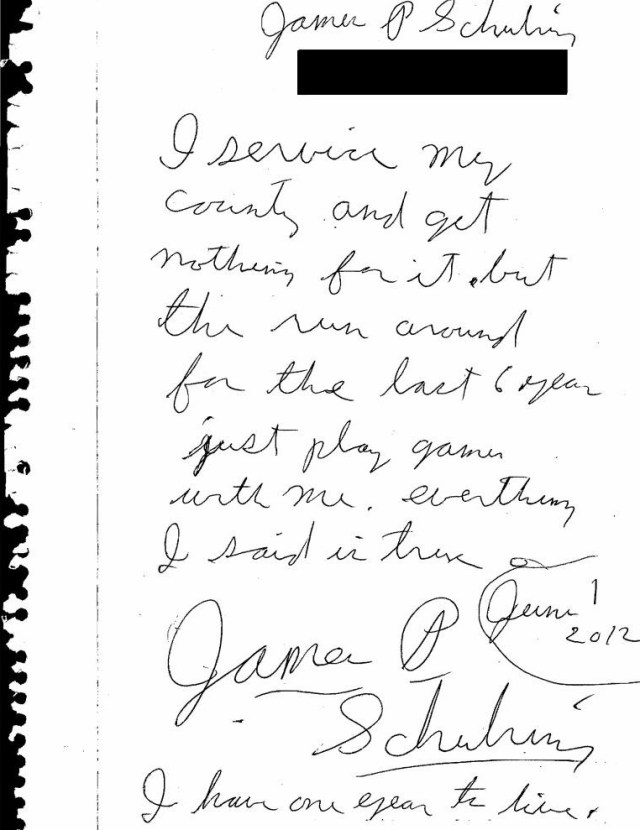 James P Schuhing
I service my
county and get
nothing for it. but
the run around
for the last 6 year
just play games
with me. everthing
I said is true
June 1
2012
James P
Schuhing
I have one year to live.